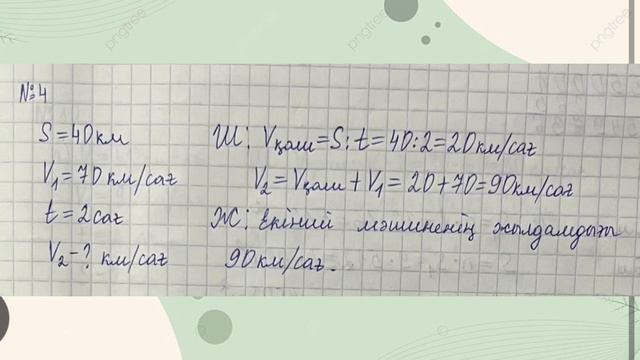 №4
S=40км
V₁=70км/сағ
t=2сағ
V₂-? км/сағ
Ш: Vқаш=S:t=40:2=20км/сағ
V₂=Vқаш+V₁=20+70=90км/сағ
Ж: Екінші машиненің жылдамдығы
90км/сағ.
pngtree
pngtree
pngtree